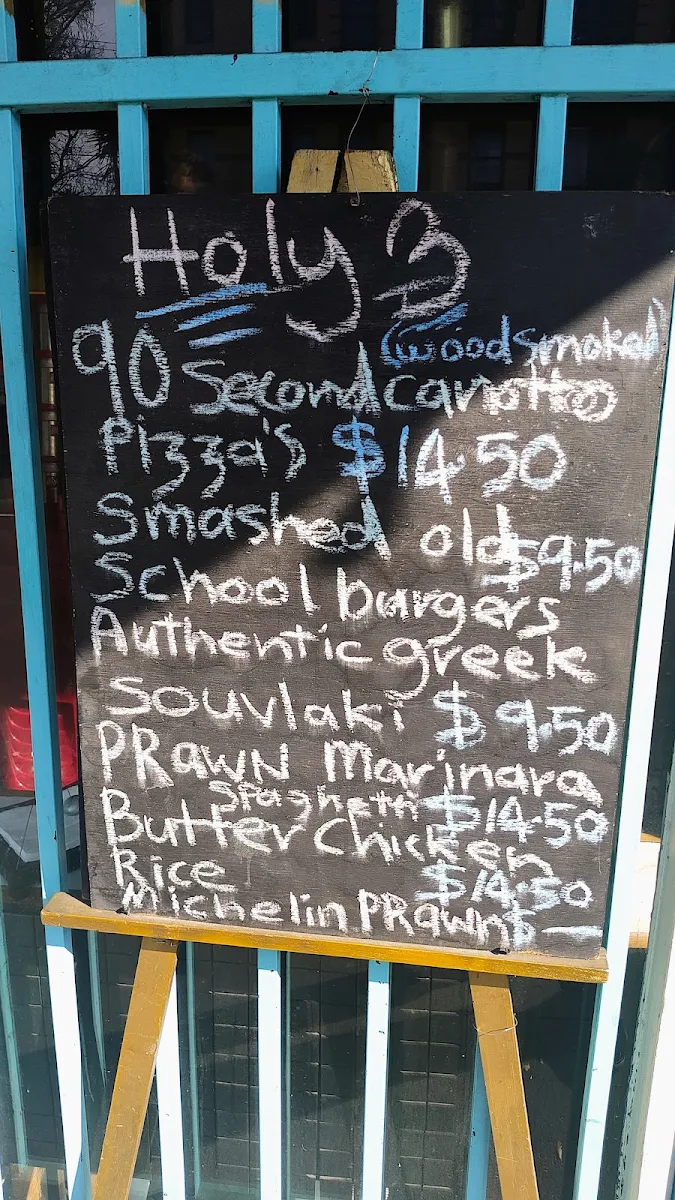 Holy 3
(woodsmoked)
90 Second canotto
Pizza's $14.50
Smashed old $9.50
School burgers
Authentic greek
souvlaki $9.50
PRawN Marinara
Spaghetti $14.50
Butter Chicken
Rice $14.50
Michelin PRawn $—